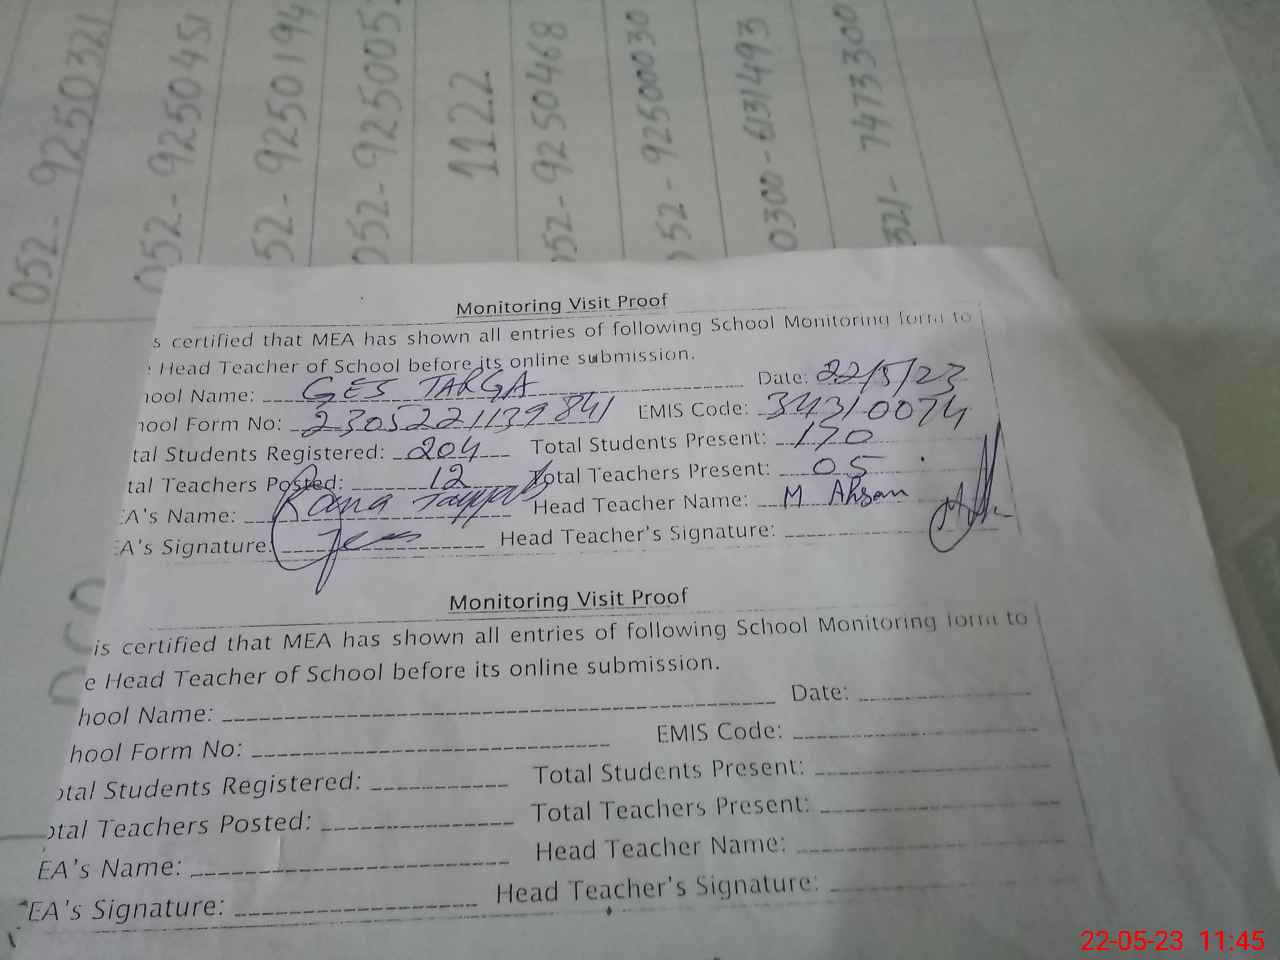 052- 9250321
052- 9250451
52- 9250194
052- 925005
1122
052- 9250468
52- 92500030
0300- 6131493
321- 7473300
Monitoring Visit Proof
s certified that MEA has shown all entries of following School Monitoring form to
Head Teacher of School before its online submission.
hool Name: GES TARGA Date: 22/5/23
hool Form No: 2305221139841 EMIS Code: 34310074
tal Students Registered: 204 Total Students Present: 170
tal Teachers Posted: 12 Total Teachers Present: 05
EA's Name: Rana Tayyab Head Teacher Name: M Ahsan
EA's Signature: Head Teacher's Signature:
Monitoring Visit Proof
is certified that MEA has shown all entries of following School Monitoring form to
e Head Teacher of School before its online submission.
hool Name: Date:
hool Form No: EMIS Code:
otal Students Registered: Total Students Present:
otal Teachers Posted: Total Teachers Present:
EA's Name: Head Teacher Name:
EA's Signature: Head Teacher's Signature:
22-05-23 11:45